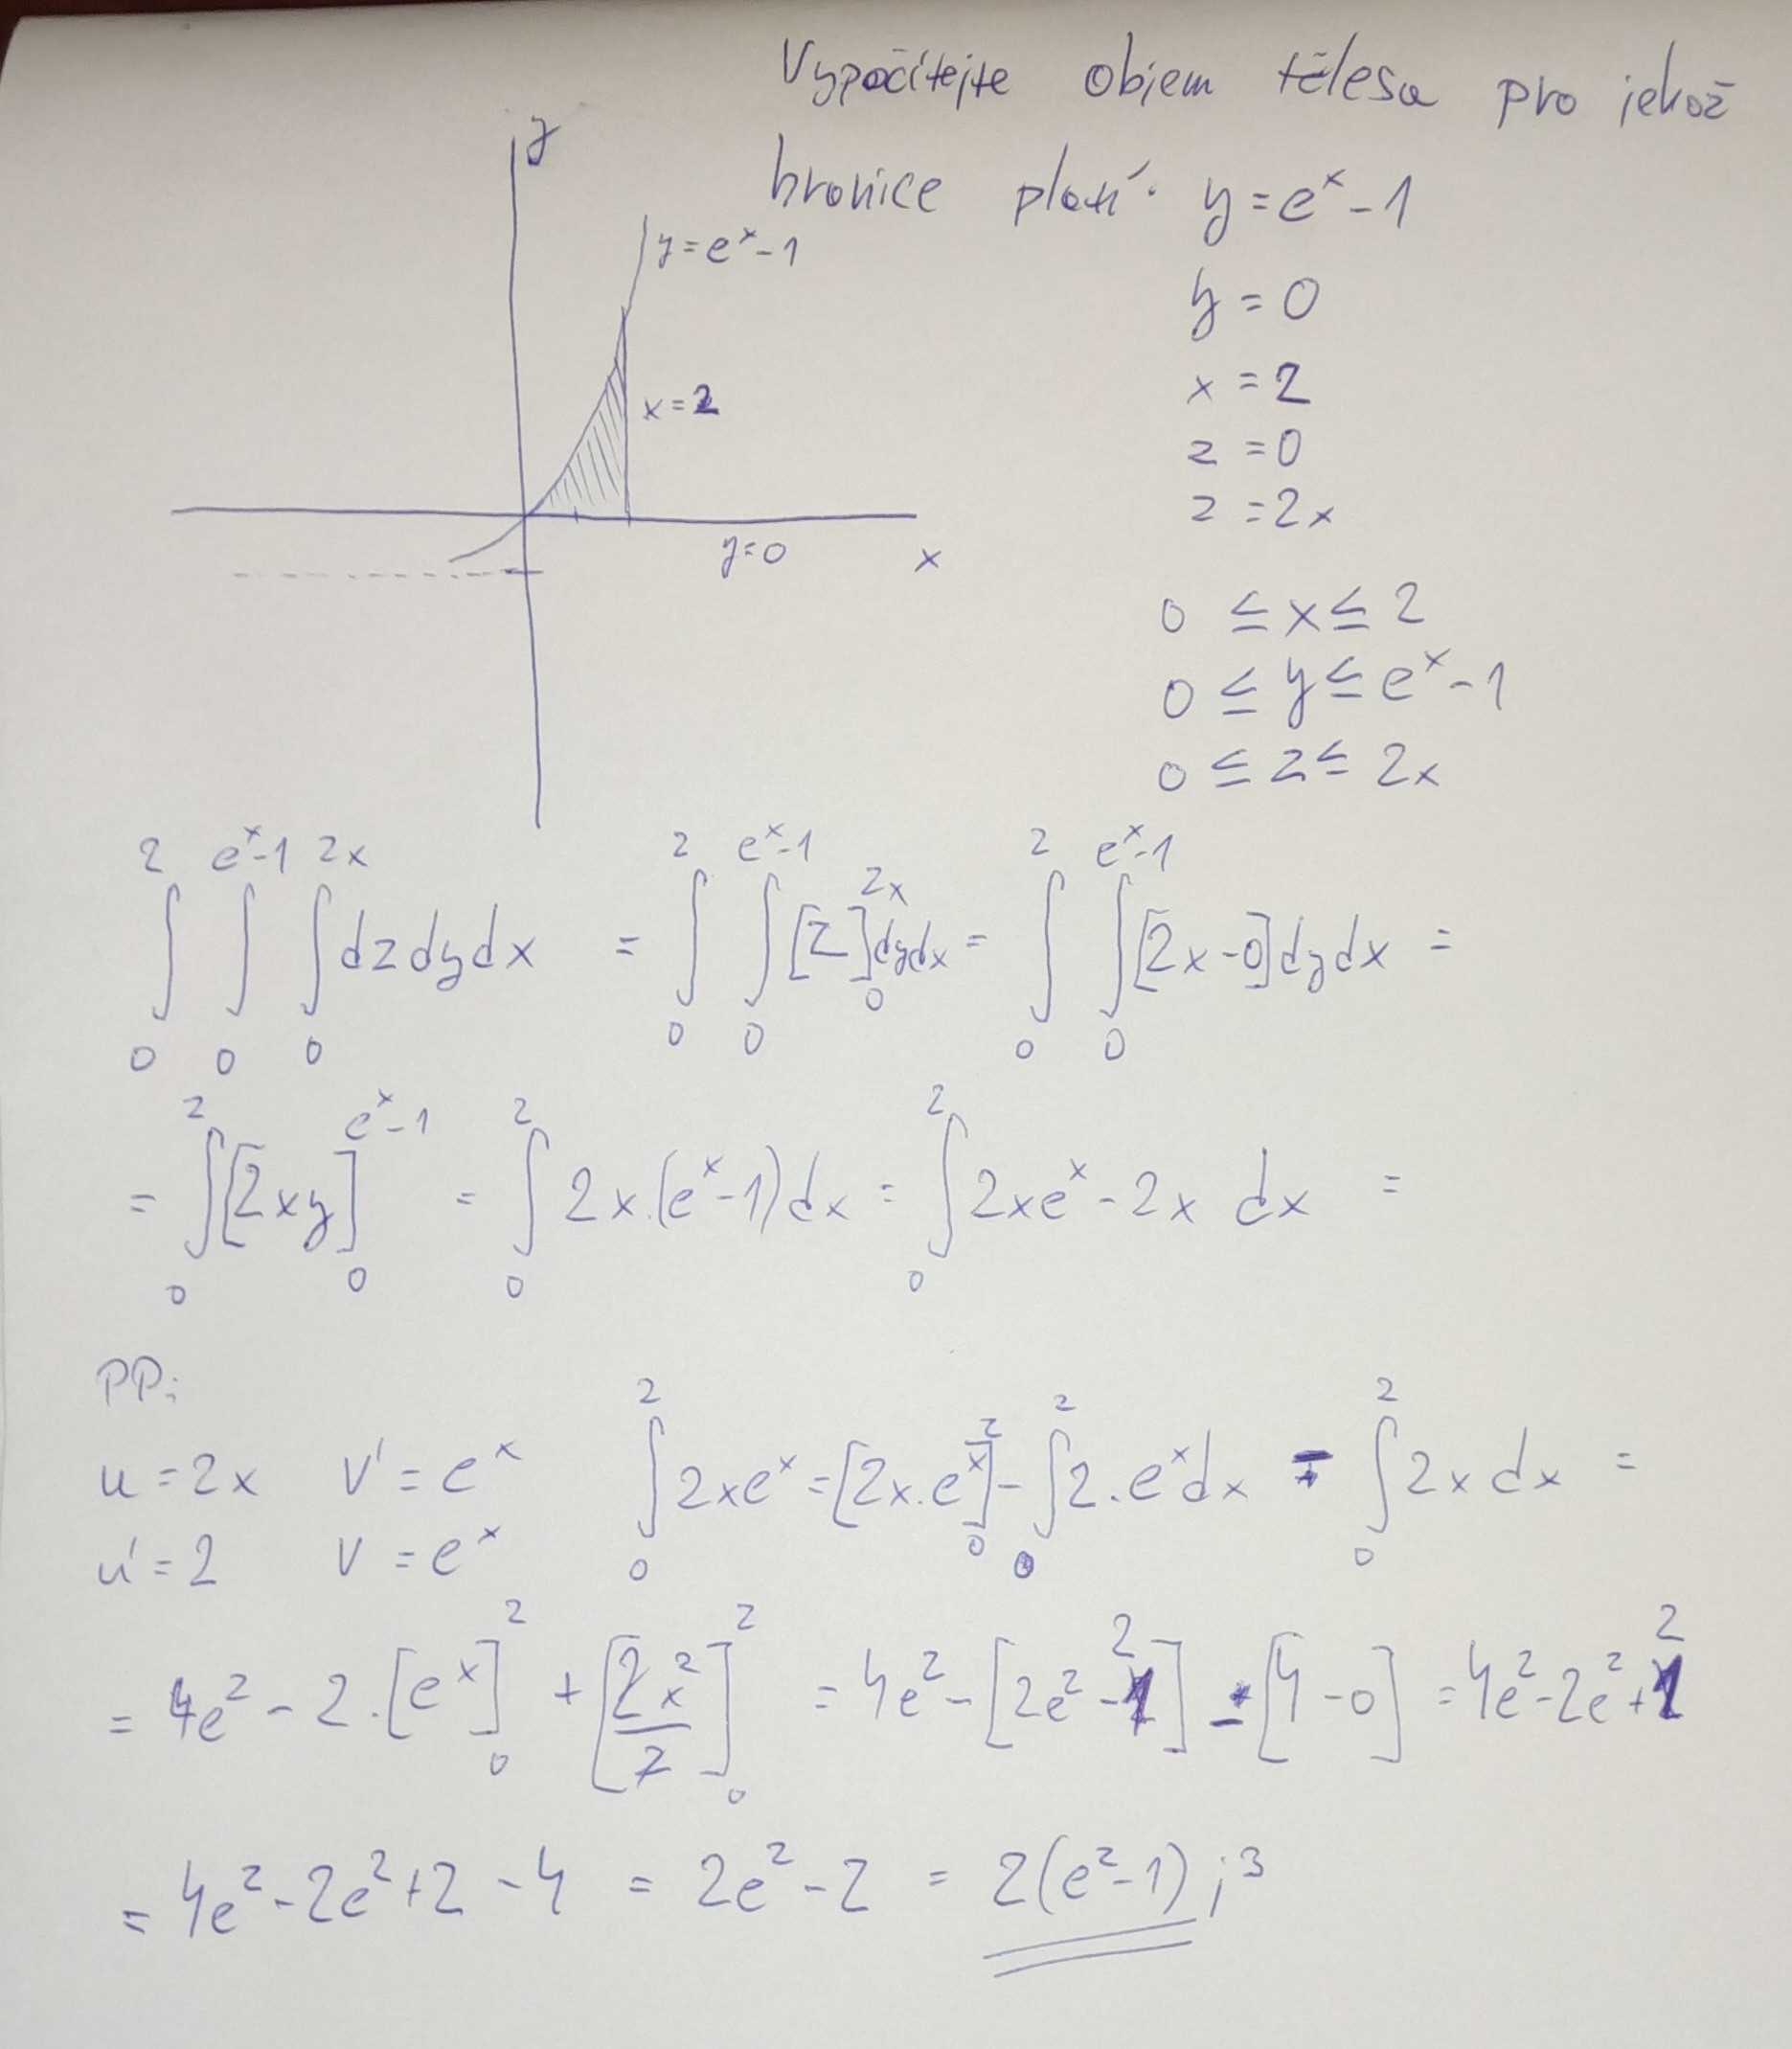 Vypočítejte objem tělesa pro jehož
hranice platí: y = e^x - 1
y = 0
x = 2
z = 0
z = 2x
y
y = e^x - 1
x = 2
y = 0
x
0 ≤ x ≤ 2
0 ≤ y ≤ e^x - 1
0 ≤ z ≤ 2x
∫_0^2 ∫_0^{e^x-1} ∫_0^{2x} dz dy dx = ∫_0^2 ∫_0^{e^x-1} [z]_0^{2x} dy dx = ∫_0^2 ∫_0^{e^x-1} [2x - 0] dy dx =
= ∫_0^2 [2xy]_0^{e^x-1} = ∫_0^2 2x.(e^x - 1) dx = ∫_0^2 2xe^x - 2x dx =
PP:
u = 2x v' = e^x ∫_0^2 2xe^x = [2x.e^x]_0^2 - ∫_0^2 2.e^x dx - ∫_0^2 2x dx =
u' = 2 v = e^x
= 4e^2 - 2.[e^x]_0^2 + [2x^2/2]_0^2 = 4e^2 - [2e^2 - 2] - [4 - 0] = 4e^2 - 2e^2 + 2
= 4e^2 - 2e^2 + 2 - 4 = 2e^2 - 2 = 2(e^2 - 1) j^3